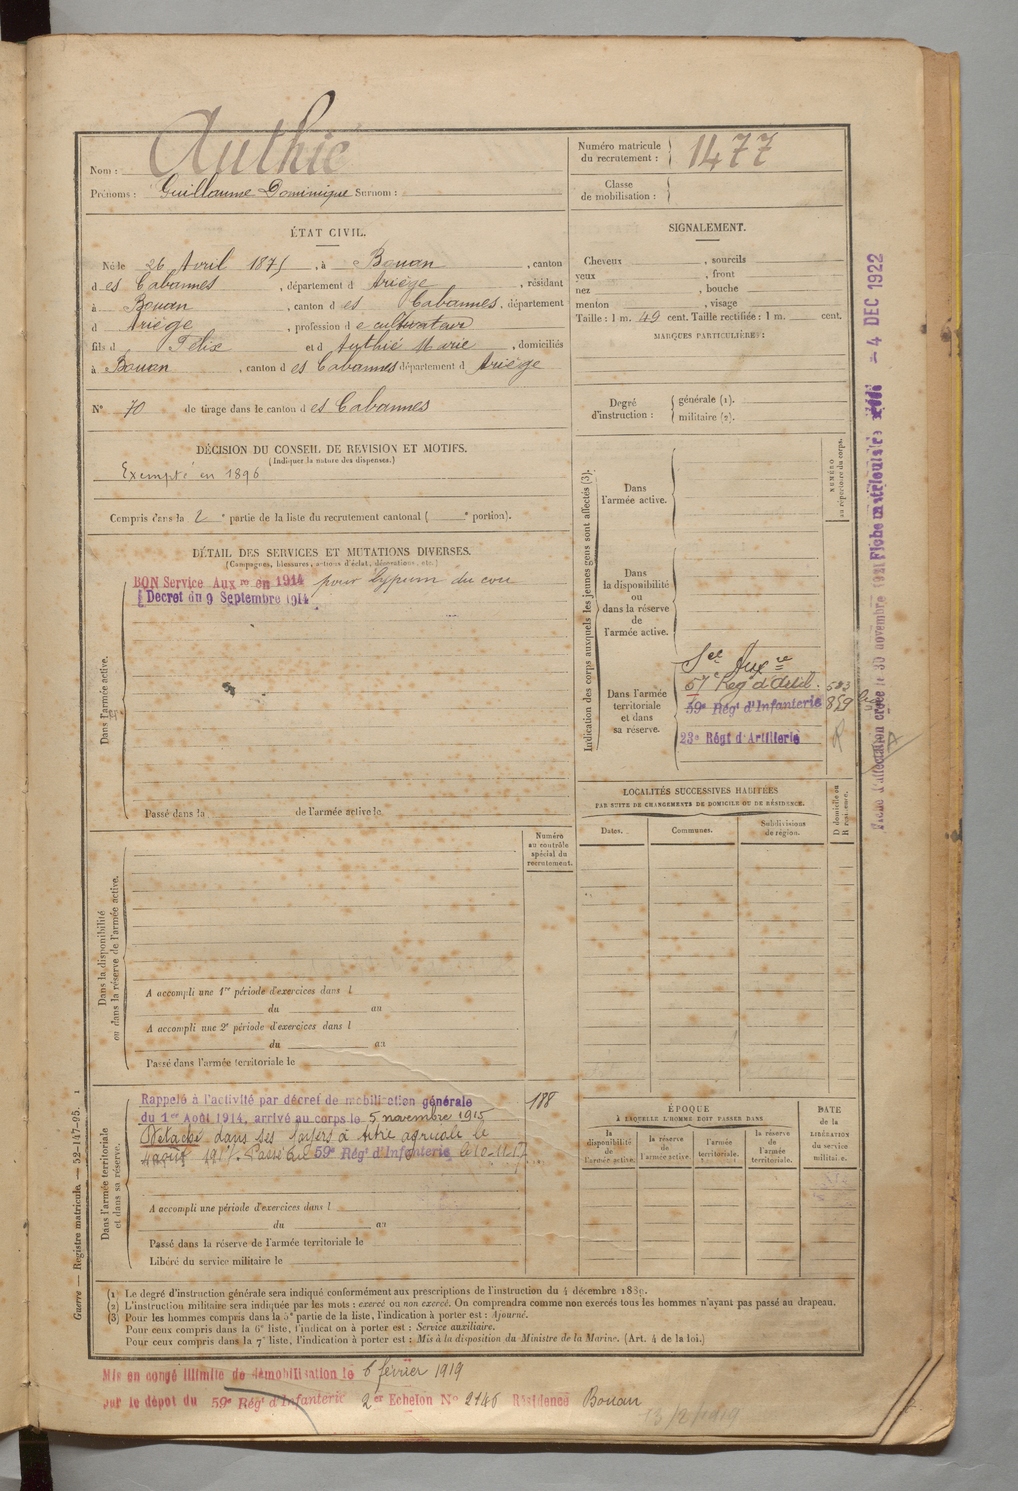 Nom : Authié
Prénoms : Guillaume Dominique Surnom :
Numéro matricule du recrutement : 1477
Classe de mobilisation :
ÉTAT CIVIL.
Né le 26 Avril 1875, à Bouan, canton
d es Cabannes, département d Ariège, résidant
à Bouan, canton d es Cabannes, département
d Ariège, profession d e cultivateur
fils d Félix et d Authié Marie, domiciliés
à Bouan, canton d es Cabannes département d Ariège
N° 70 de tirage dans le canton d es Cabannes
SIGNALEMENT.
Cheveux , sourcils
yeux , front
nez , bouche
menton , visage
Taille : 1 m. 49 cent. Taille rectifiée : 1 m. cent.
MARQUES PARTICULIÈRES :
Degré d'instruction : générale (1).
militaire (2).
DÉCISION DU CONSEIL DE REVISION ET MOTIFS.
(Indiquer la nature des dispenses.)
Exempté en 1896
Compris dans la 2e partie de la liste du recrutement cantonal ( e portion).
DÉTAIL DES SERVICES ET MUTATIONS DIVERSES.
(Campagnes, blessures, actions d'éclat, décorations, etc.)
Dans l'armée active.
BON Service Auxre en 1914 pour lypum du cou
Decret du 9 Septembre 1914
Passé dans la de l'armée active le
Indication des corps auxquels les jeunes gens sont affectés (3).
NUMÉRO au répertoire du corps.
Dans l'armée active.
Dans la disponibilité ou dans la réserve de l'armée active.
Dans l'armée territoriale et dans sa réserve.
Sce Auxre
57e Reg d'Artil. 583
59e Régt d'Infanterie 859
23e Régt d'Artillerie
LOCALITÉS SUCCESSIVES HABITÉES
PAR SUITE DE CHANGEMENTS DE DOMICILE OU DE RÉSIDENCE.
Dates.
Communes.
Subdivisions de région.
D domicile ou R résidence.
Numéro au contrôle spécial du recrutement.
Dans la disponibilité ou dans la réserve de l'armée active.
A accompli une 1re période d'exercices dans l
du au
A accompli une 2e période d'exercices dans l
du au
Passé dans l'armée territoriale le
Dans l'armée territoriale et dans sa réserve.
Rappelé à l'activité par décret de mobilisation générale 188
du 1er Août 1914, arrivé au corps le 5 novembre 1915
Détaché dans ses foyers à titre agricole le
4 août 1917. Passé au 59e Régt d'Infanterie le 10-11-17
A accompli une période d'exercices dans l
du au
Passé dans la réserve de l'armée territoriale le
Libéré du service militaire le
ÉPOQUE
À LAQUELLE L'HOMME DOIT PASSER DANS
la disponibilité de l'armée active.
la réserve de l'armée active.
l'armée territoriale.
la réserve de l'armée territoriale.
DATE de la LIBÉRATION du service militaire.
(1) Le degré d'instruction générale sera indiqué conformément aux prescriptions de l'instruction du 4 décembre 1889.
(2) L'instruction militaire sera indiquée par les mots : exercé ou non exercé. On comprendra comme non exercés tous les hommes n'ayant pas passé au drapeau.
(3) Pour les hommes compris dans la 5e partie de la liste, l'indication à porter est : Ajourné.
Pour ceux compris dans la 6e liste, l'indication à porter est : Service auxiliaire.
Pour ceux compris dans la 7e liste, l'indication à porter est : Mis à la disposition du Ministre de la Marine. (Art. 4 de la loi.)
Mis en congé illimité de démobilisation le 6 février 1919
par le dépot du 59e Régt d'Infanterie 2er Echelon No 2146 Résidence Bouan
Guerre — Registre matricule — 52-147-95.
Fiche d'affectation créée le 30 novembre 1921 Fiche matriculaire - 4 DEC 1922